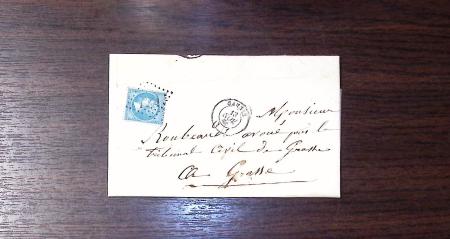 Monsieur
Roubeaud avoué près le
tribunal Civil de Grasse
A Grasse